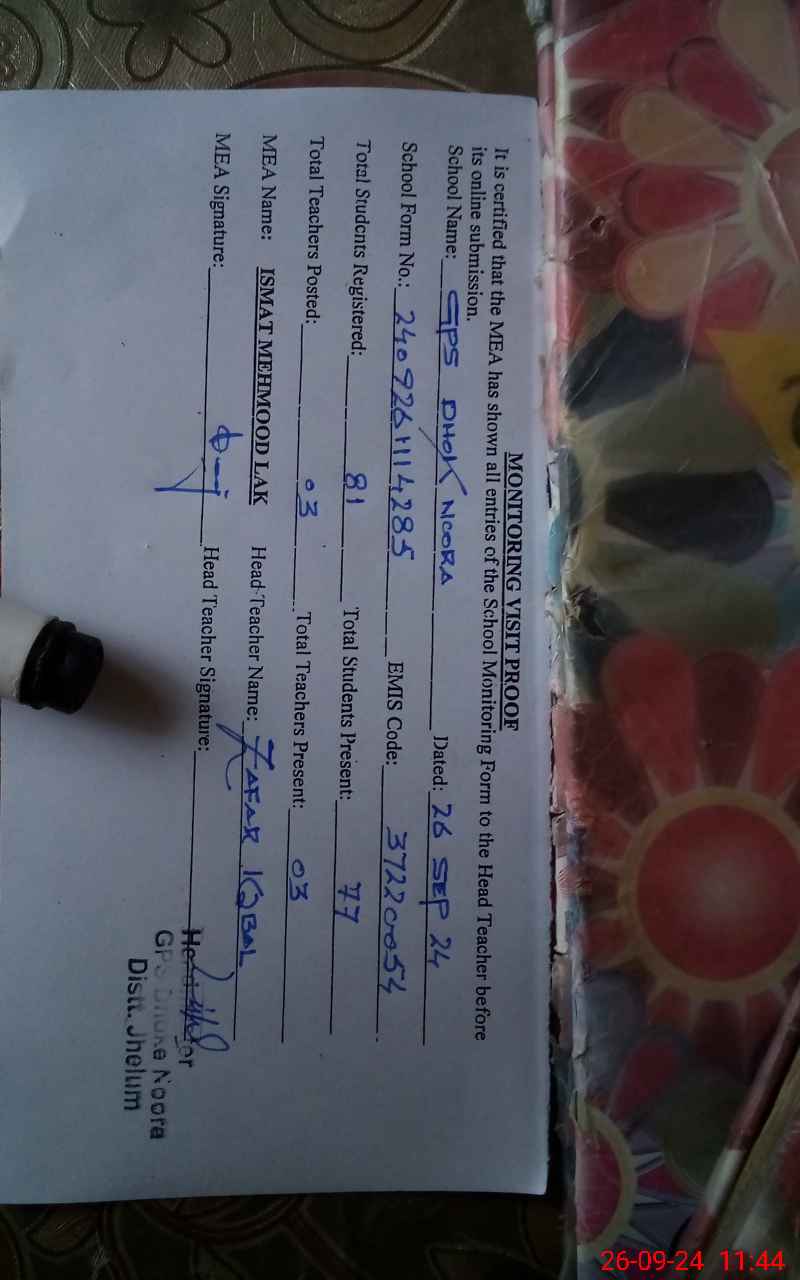 MONITORING VISIT PROOF
It is certified that the MEA has shown all entries of the School Monitoring Form to the Head Teacher before
its online submission.
School Name: GPS DHOK NOORA Dated: 26 SEP 24
School Form No.: 2409261114285 EMIS Code: 37220054
Total Students Registered: 81 Total Students Present: 77
Total Teachers Posted: 03 Total Teachers Present: 03
MEA Name: ISMAT MEHMOOD LAK Head Teacher Name: ZAFAR IQBAL
MEA Signature: Head Teacher Signature:
GPS Dhoke Noora
Distt. Jhelum
26-09-24 11:44